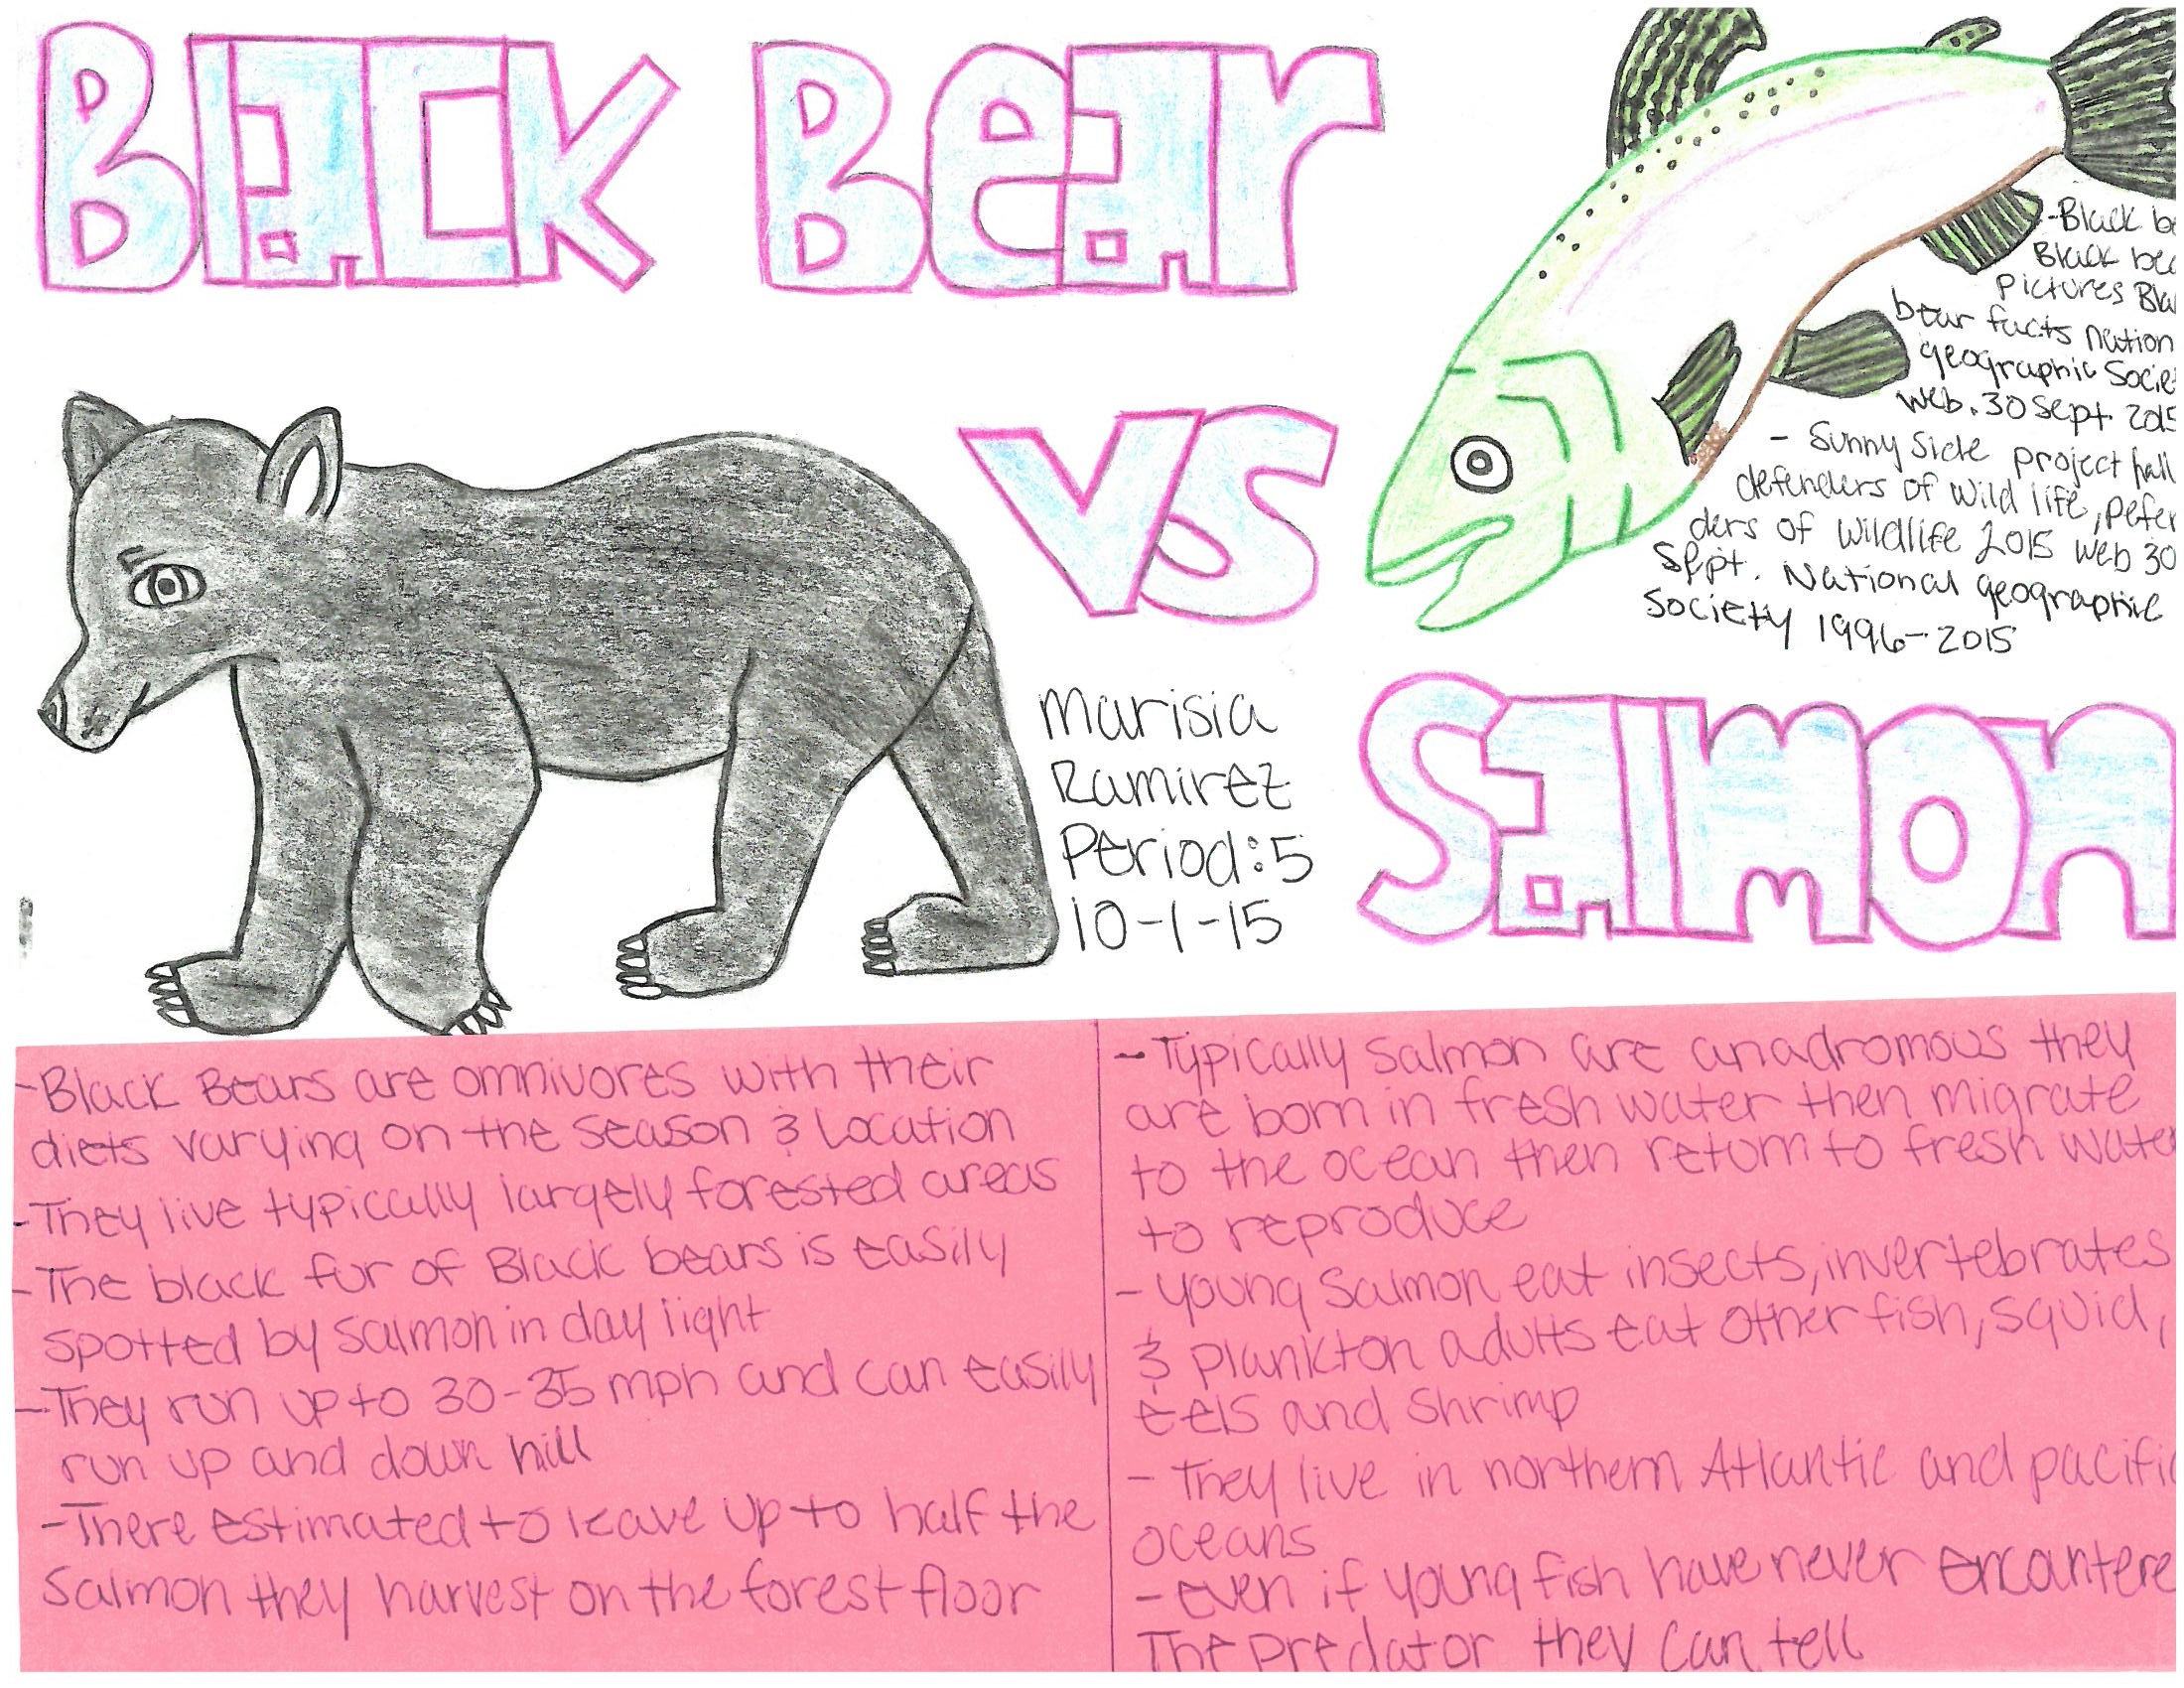 Black Bear
VS
Salmon
-Black be
Black bea
pictures Bla
bear facts nation
geographic Socie
web. 30 Sept. 2015
- Sunny Side project
defenders of wild life, Defen
ders of Wildlife 2015 web 30
Sept. National geographic
Society 1996-2015
Marisia
Ramirez
Period:5
10-1-15
-Black Bears are omnivores with their
diets varying on the season & Location
-They live typically largely forested areas
-The black fur of Black bears is easily
spotted by salmon in day light
-They run up to 30-35 mph and can easily
run up and down hill
-There estimated to leave up to half the
Salmon they harvest on the forest floor
-Typically Salmon are anadromous they
are born in fresh water then migrate
to the ocean then return to fresh wate
to reproduce
- young Salmon eat insects, invertebrates
& plankton adults eat other fish, squid,
eels and shrimp
- They live in northern Atlantic and pacific
oceans
- even if young fish have never encantere
The predator they can tell